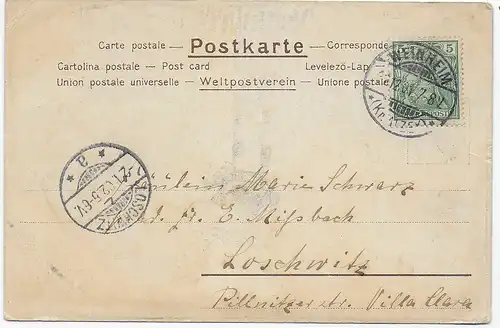 Carte postale — Postkarte — Corresponde
Cartolina postale — Post card Levelező-Lap
Union postale universelle — Weltpostverein — Unione postale
5
WEINHEIM
7-8
LOSCHWITZ
5-6V.
Fräulein Marie Schwarz
E. Mißbach
Loschwitz
Pillnitzer str. Villa Clara